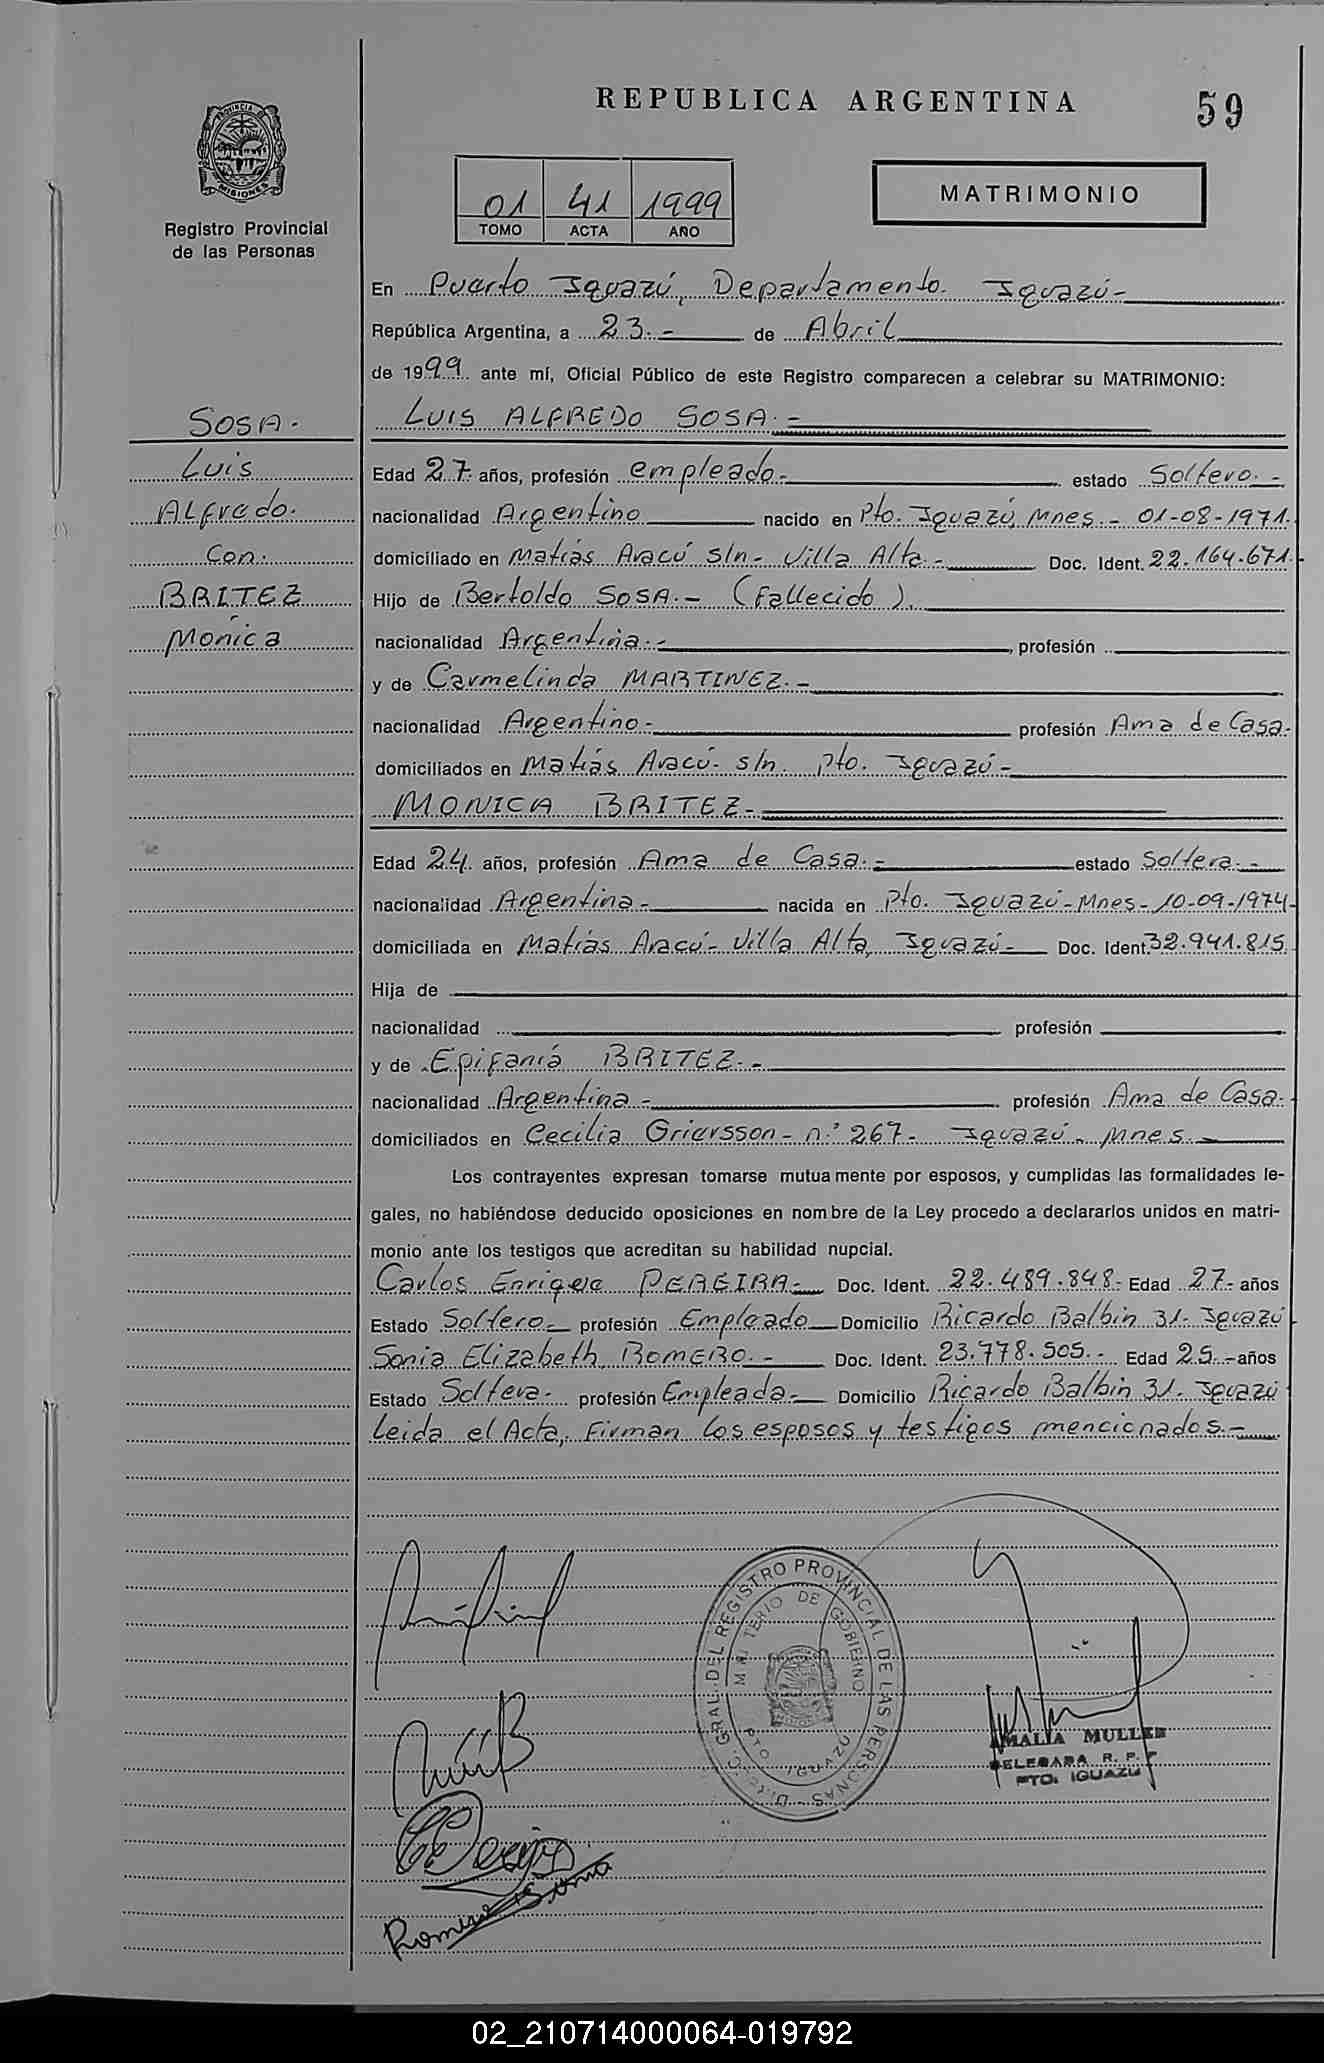 REPUBLICA ARGENTINA
59
PROVINCIA DE
MISIONES
Registro Provincial
de las Personas
01 41 1999
TOMO ACTA AÑO
MATRIMONIO
En Puerto Iguazú, Departamento. Iguazú-
República Argentina, a 23.- de Abril
de 1999. ante mí, Oficial Público de este Registro comparecen a celebrar su MATRIMONIO:
SOSA.
Luis
ALfredo.
Con.
BRITEZ
Mónica
LUIS ALFREDO SOSA.-
Edad 27. años, profesión empleado.- estado Soltero.-
nacionalidad Argentino nacido en Pto. Iguazú, Mnes.- 01-08-1971.
domiciliado en Matías Aracú s/n- Villa Alta.- Doc. Ident. 22.164.671.-
Hijo de Bertoldo SOSA.- (Fallecido).
nacionalidad Argentina.- , profesión
y de Carmelinda MARTINEZ.-
nacionalidad Argentino- profesión Ama de Casa.
domiciliados en Matías Aracú- s/n. Pto. Iguazú-
MONICA BRITEZ-
Edad 24. años, profesión Ama de Casa.- estado Soltera.-
nacionalidad Argentina- nacida en Pto. Iguazú-Mnes-10-09-1974-
domiciliada en Matías Aracú- Villa Alta, Iguazú- Doc. Ident. 32.941.815.
Hija de
nacionalidad profesión
y de Epifaniá BRITEZ.-
nacionalidad Argentina- profesión Ama de Casa.
domiciliados en Cecilia Griersson- n.° 267- Iguazú- Mnes.-
Los contrayentes expresan tomarse mutuamente por esposos, y cumplidas las formalidades le-
gales, no habiéndose deducido oposiciones en nombre de la Ley procedo a declararlos unidos en matri-
monio ante los testigos que acreditan su habilidad nupcial.
Carlos Enrique PEREIRA- Doc. Ident. 22.489.848- Edad 27- años
Estado Soltero- profesión Empleado Domicilio Ricardo Balbin 31- Iguazú
Sonia Elizabeth ROMERO.- Doc. Ident. 23.778.505.- Edad 25.-años
Estado Soltera- profesión Empleada- Domicilio Ricardo Balbin 31- Iguazú
Leida el Acta, Firman los esposos y testigos mencionados.-
DIREC. GRAL. DEL REGISTRO PROVINCIAL DE LAS PERSONAS
MINISTERIO DE GOBIERNO
PTO. IGUAZU
AMALIA MULLER
DELEGADA R. P. P.
PTO. IGUAZU
Romero S. Sonia
02_210714000064-019792